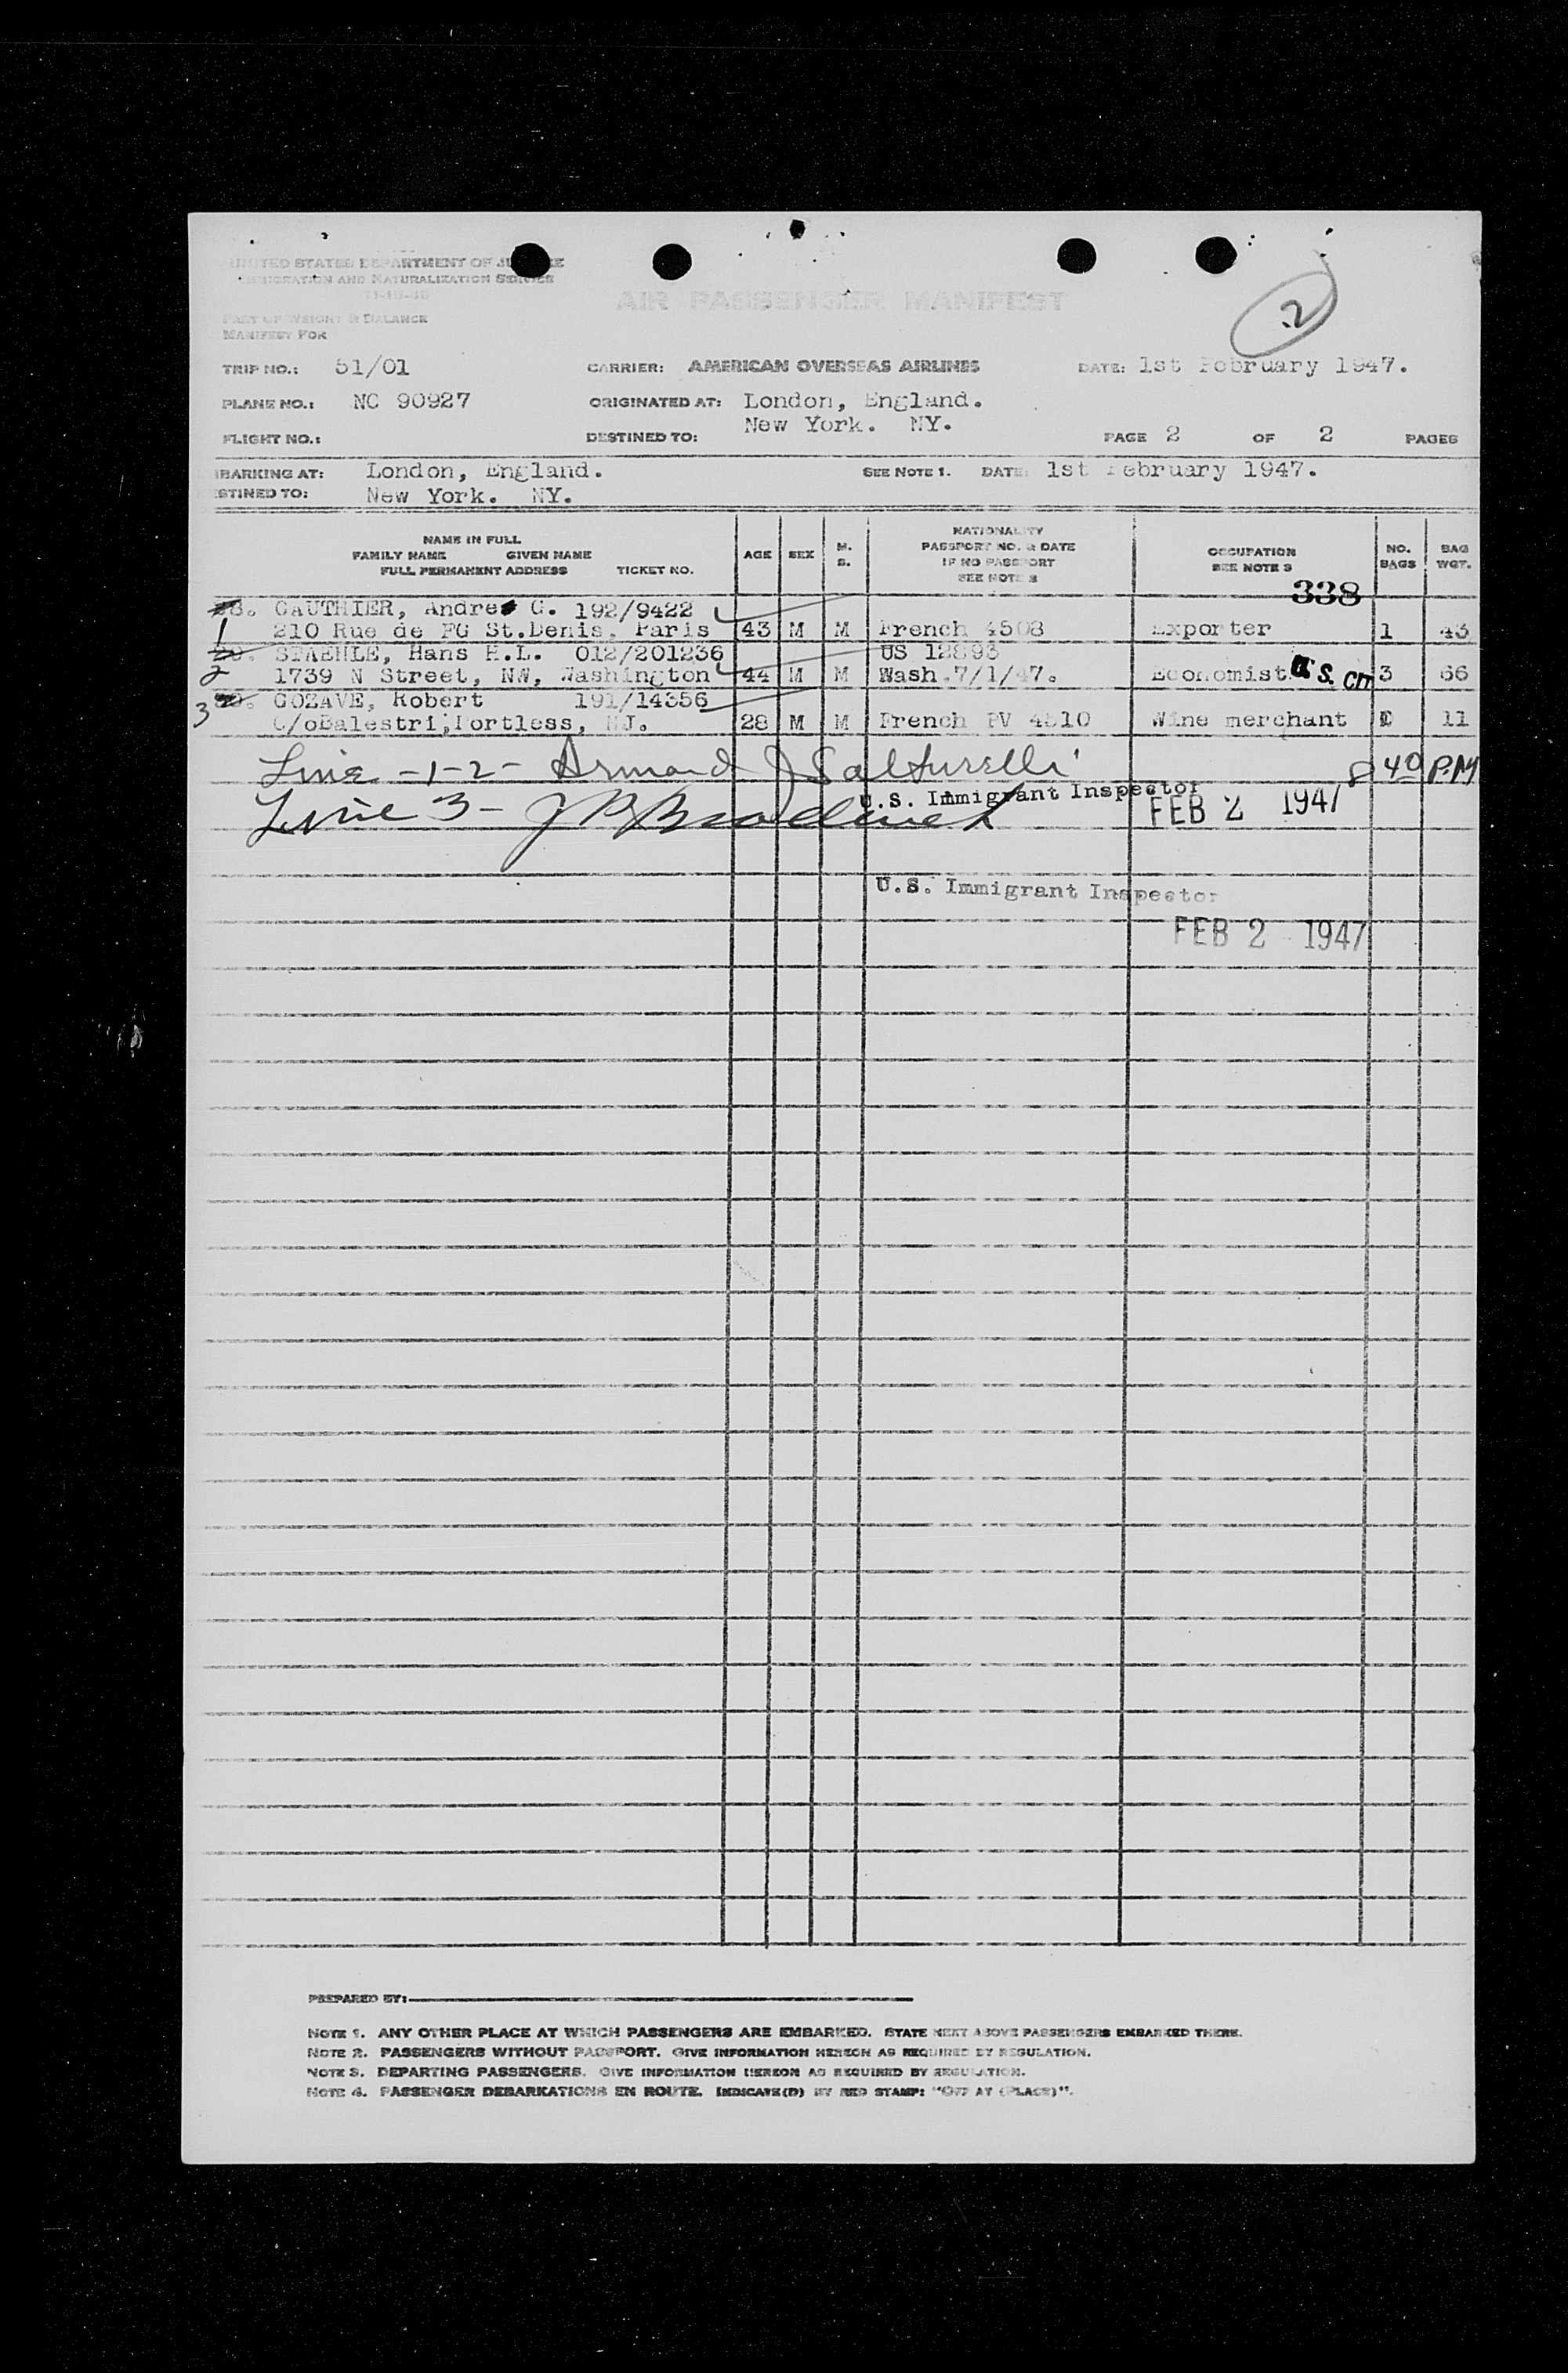 UNITED STATES DEPARTMENT OF JUSTICE
IMMIGRATION AND NATURALIZATION SERVICE
AIR PASSENGER MANIFEST
2
PART OF WEIGHT & BALANCE
MANIFEST FOR
TRIP NO.: 51/01 CARRIER: AMERICAN OVERSEAS AIRLINES DATE: 1st February 1947.
PLANE NO.: NC 90927 ORIGINATED AT: London, England.
FLIGHT NO.: DESTINED TO: New York. NY. PAGE 2 OF 2 PAGES
BARKING AT: London, England. SEE NOTE 1. DATE: 1st February 1947.
STINED TO: New York. NY.
NAME IN FULL
FAMILY NAME GIVEN NAME
FULL PERMANENT ADDRESS TICKET NO.
AGE SEX M. S.
NATIONALITY
PASSPORT NO. & DATE
IF NO PASSPORT
SEE NOTE 2
OCCUPATION
SEE NOTE 3
NO. BAGS
BAG WGT.
338
28. GAUTHIER, Andre G. 192/9422
1 210 Rue de FG St.Denis, Paris 43 M M French 4508 Exporter 1 43
29. STAEHLE, Hans H.L. 012/201236 US 12893
2 1739 N Street, NW, Washington 44 M M Wash.7/1/47. Economist U.S. CIT 3 66
30. GOZAVE, Robert 191/14356
3 C/oBalestri, Fortless, NJ. 28 M M French PV 4510 Wine merchant 11
Line -1-2- Armand J Salturelli 8 40 P.M
U.S. Immigrant Inspector
FEB 2 1947
Line 3-
U.S. Immigrant Inspector
FEB 2 1947
PREPARED BY:
NOTE 1. ANY OTHER PLACE AT WHICH PASSENGERS ARE EMBARKED. STATE NEXT ABOVE PASSENGERS EMBARKED THERE.
NOTE 2. PASSENGERS WITHOUT PASSPORT. GIVE INFORMATION HEREON AS REQUIRED BY REGULATION.
NOTE 3. DEPARTING PASSENGERS. GIVE INFORMATION HEREON AS REQUIRED BY REGULATION.
NOTE 4. PASSENGER DEBARKATIONS EN ROUTE. INDICATE(D) BY RED STAMP: "OFF AT (PLACE)".